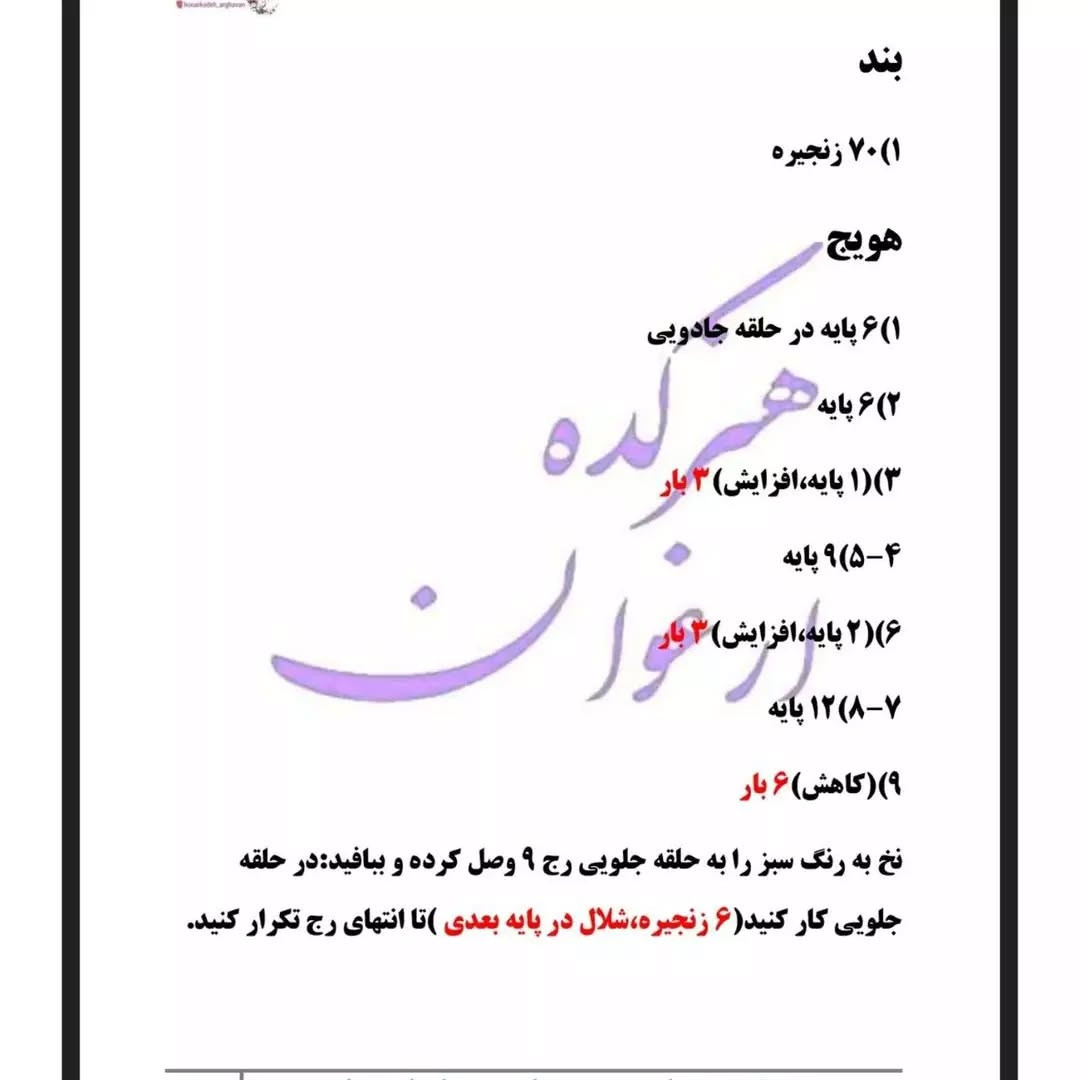 honarkadeh_arghavan
بند
۱)۷۰ زنجیره
هویج
۱)۶ پایه در حلقه جادویی
۲)۶ پایه
۳)(۱ پایه،افزایش)۳ بار
۴-۵)۹ پایه
۶)(۲ پایه،افزایش)۳ بار
۷-۸)۱۲ پایه
۹)(کاهش)۶ بار
نخ به رنگ سبز را به حلقه جلویی رج ۹ وصل کرده و ببافید:در حلقه
جلویی کار کنید(۶ زنجیره،شلال در پایه بعدی )تا انتهای رج تکرار کنید.
هنرکده
ارغوان